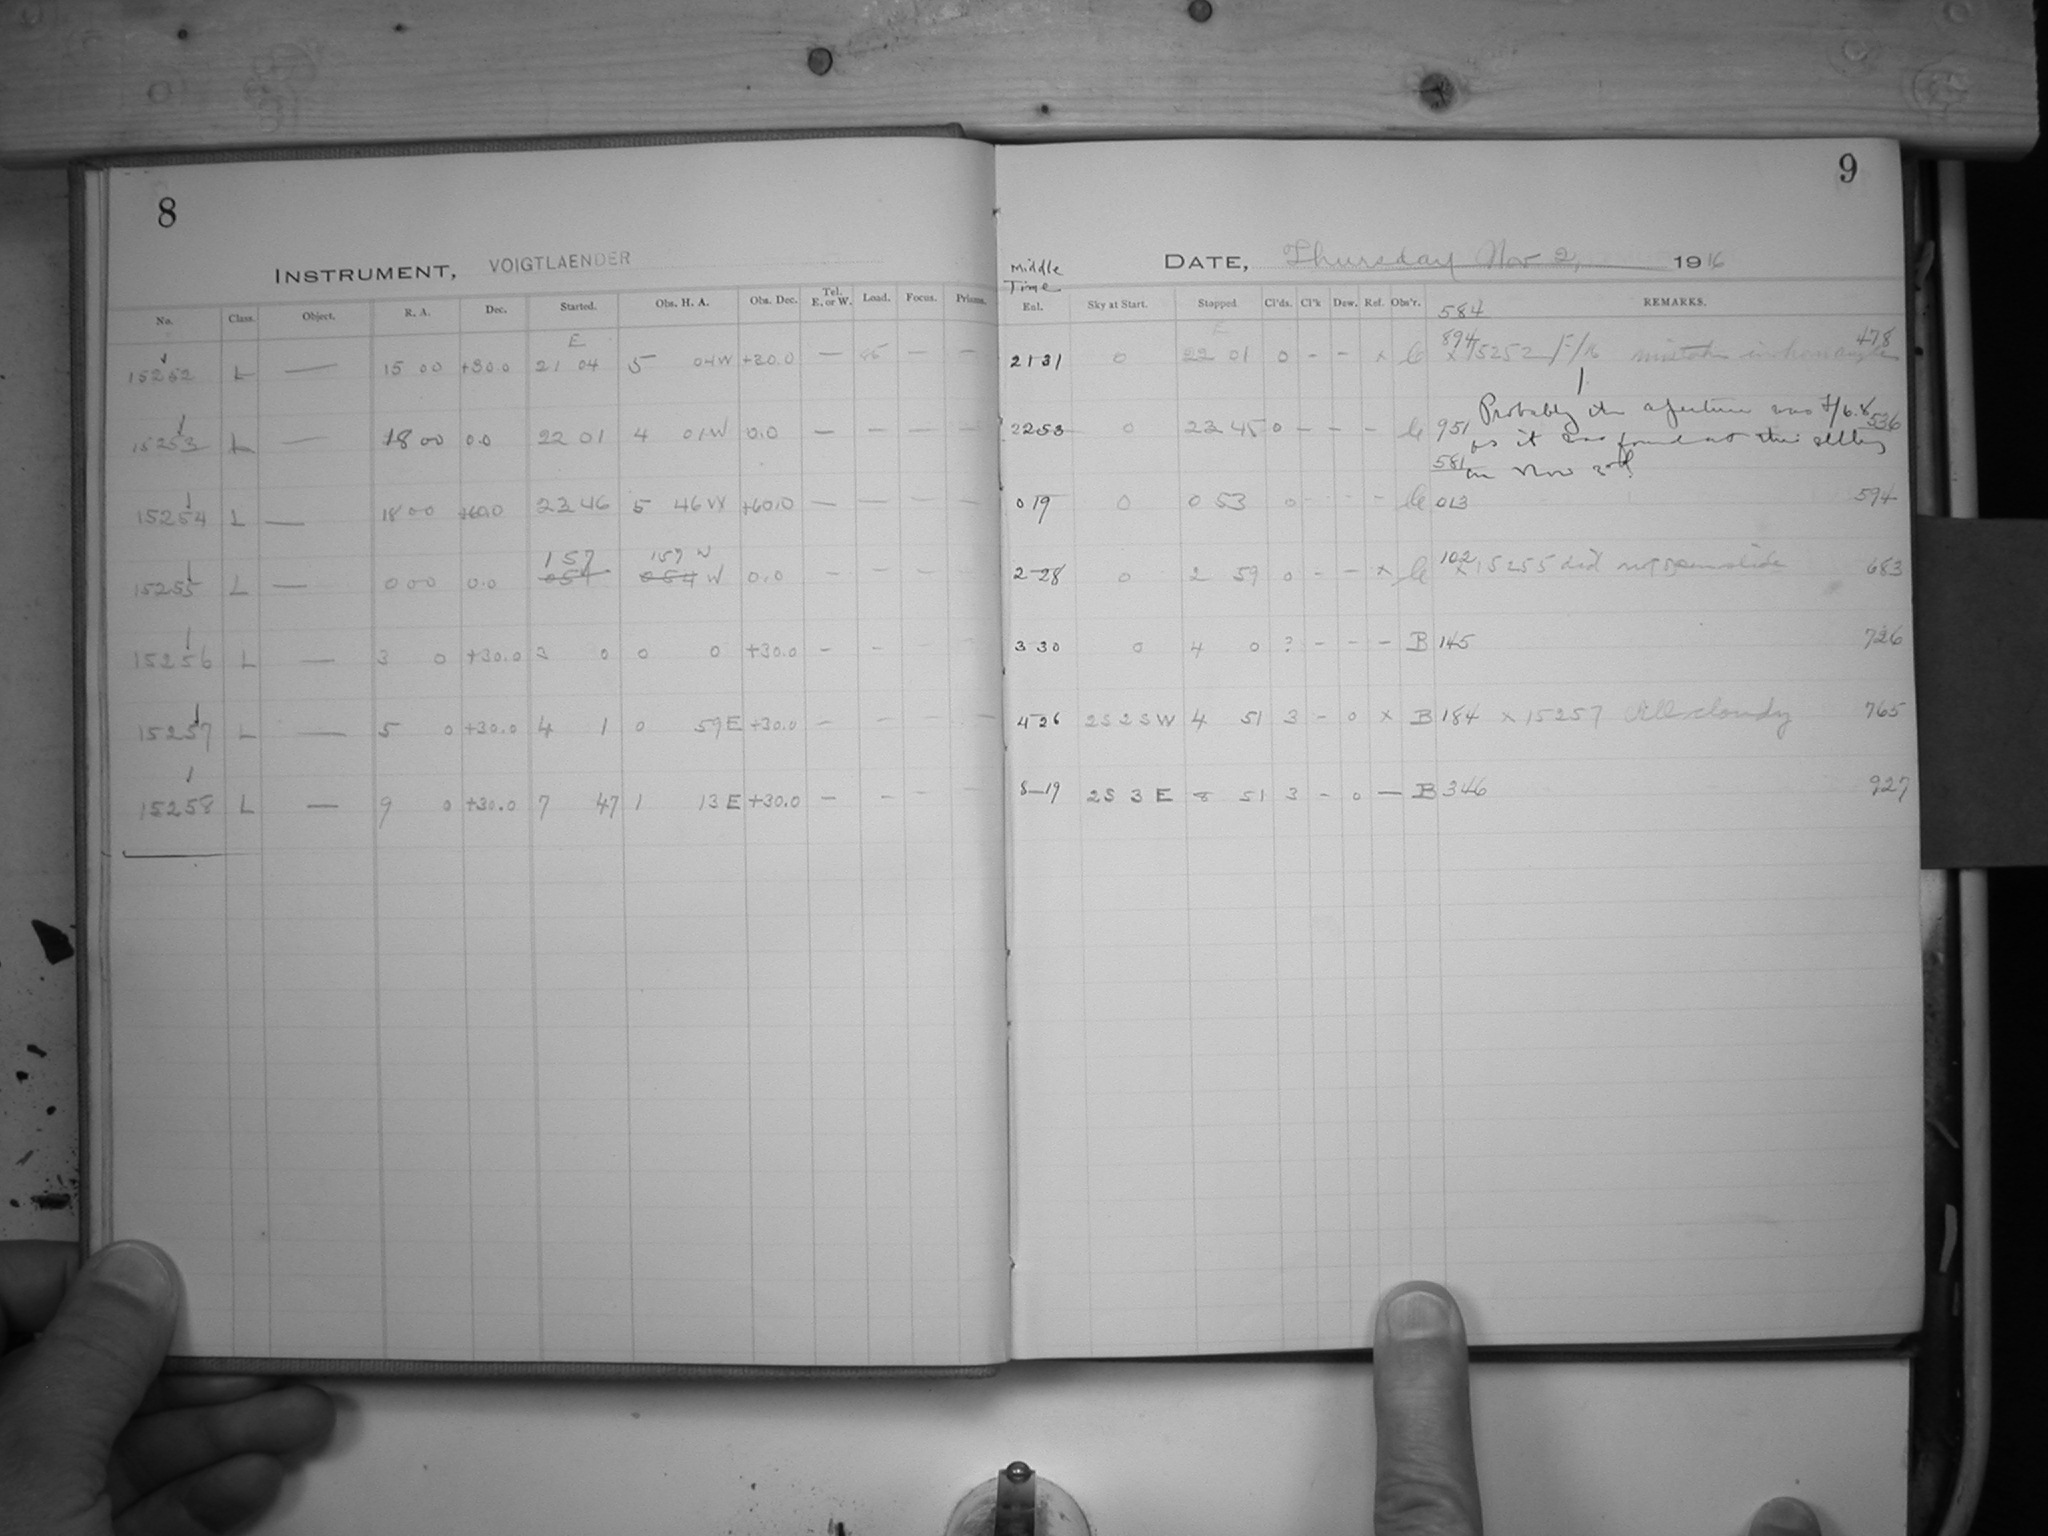 8
INSTRUMENT, VOIGTLAENDER
No. Class. Object. R. A. Dec. Started. Obs. H. A. Obs. Dec. Tel. E. or W. Load. Focus. Prisms.
E
15252 L — 15 00 +30.0 21 04 5 04W +30.0 — — —
15253 L — 18 00 0.0 22 01 4 01W 0.0 — — — —
15254 L — 18 00 +60.0 23 46 5 46W +60.0 — — — —
1 57 1 57 W
15255 L — 0 00 0.0 0 54 0 54 W 0.0 — — — —
15256 L — 3 0 +30.0 3 0 0 0 +30.0 — — — —
15257 L — 5 0 +30.0 4 1 0 59E +30.0 — — — —
15258 L — 9 0 +30.0 7 47 1 13E +30.0 — — — —
9
DATE, Thursday Nov 2, 1916
Middle
Time
Enl. Sky at Start. Stopped. Cl'ds. Cl'k Dew. Ref. Obs'r. REMARKS.
584
21 31 0 22 01 0 - - x 894 x 15252 F/16 mistake in hour angle 478
Probably the aperture was F/6.8
22 53 0 23 45 0 - - - 951 as it was found at this setting 536
581 on Nov 3rd
0 19 0 0 53 0 - - - 013 594
2 28 0 2 59 0 - - x 102 x 15255 did not open slide 683
3 30 0 4 0 ? - - - B 145 726
4 26 2S 2SW 4 51 3 - 0 x B 184 x 15257 All cloudy 765
8 19 2S 3E 8 51 3 - 0 — B 346 927